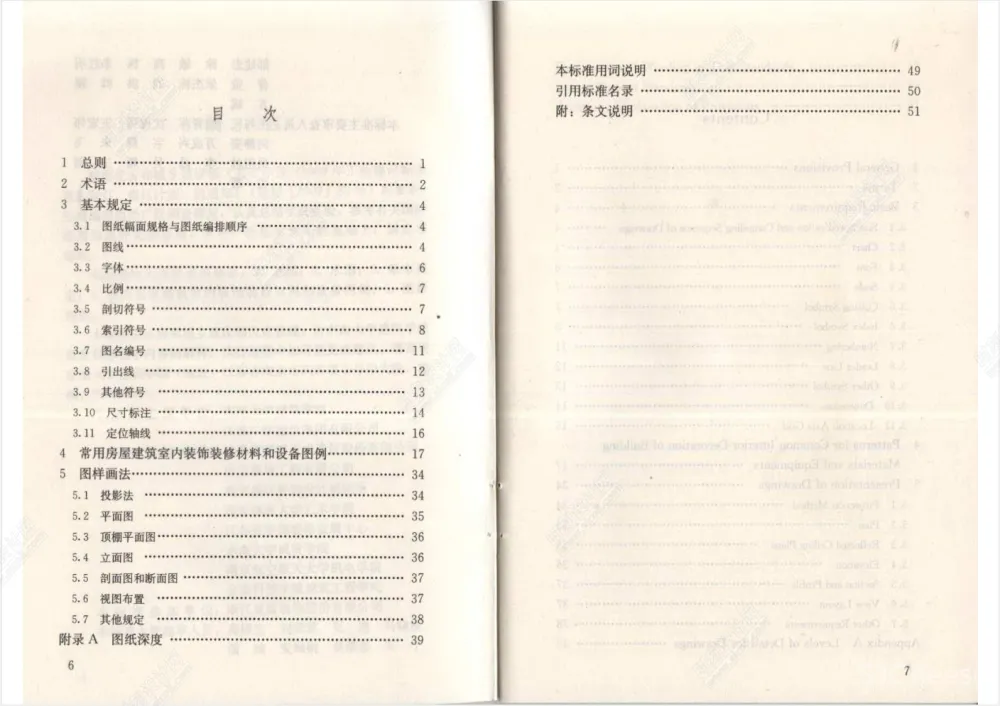 目 次
1 总则 …… 1
2 术语 …… 2
3 基本规定 …… 4
3.1 图纸幅面规格与图纸编排顺序 …… 4
3.2 图线 …… 4
3.3 字体 …… 6
3.4 比例 …… 7
3.5 剖切符号 …… 7
3.6 索引符号 …… 8
3.7 图名编号 …… 11
3.8 引出线 …… 12
3.9 其他符号 …… 13
3.10 尺寸标注 …… 14
3.11 定位轴线 …… 16
4 常用房屋建筑室内装饰装修材料和设备图例 …… 17
5 图样画法 …… 34
5.1 投影法 …… 34
5.2 平面图 …… 35
5.3 顶棚平面图 …… 36
5.4 立面图 …… 36
5.5 剖面图和断面图 …… 37
5.6 视图布置 …… 37
5.7 其他规定 …… 38
附录A 图纸深度 …… 39
6
本标准用词说明 …… 49
引用标准名录 …… 50
附：条文说明 …… 51
7